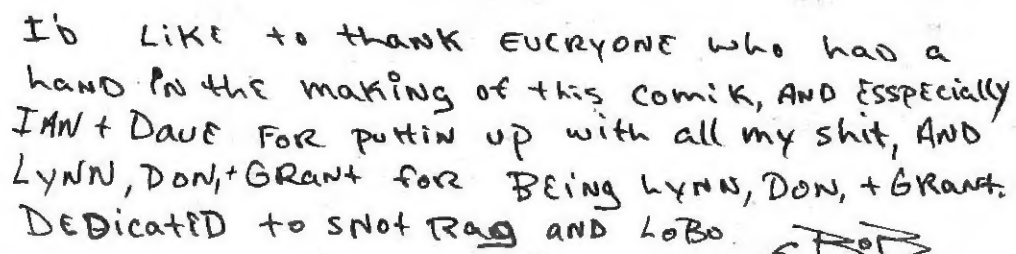 I'D LIKE to thANK EVERYONE who haD a
haND IN thE makiNg of this comiK, AND ESSPECially
IAN + DavE FOR puttiN up with all my shit, AND
LYNN, DON, + GRaNt foR BEiNg LYNN, DON, + GRaNt.
DEDicatED to sNot Rag aND LoBo. BoB